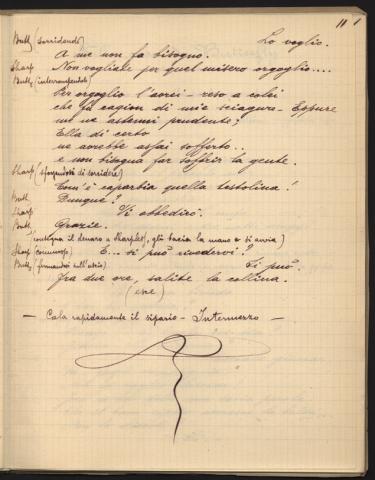 11
Butt. (sorridendo) Lo voglio.
A me non fa bisogno.
Sharp Non vogliate per quel misero orgoglio....
Butt. (interrompendolo)
Per orgoglio l'avrei - reso a colei
che fu cagion di mie sciagure - Eppure
me ne astenni prudente;
Ella di certo
ne avrebbe assai sofferto..
e non bisogna far soffrir la gente.
Sharp (sforzandosi di sorridere)
Com'è caparbia quella testolina!
Butt. Dunque?
Sharp Vi obbedirò.
Butt. Grazie.
(consegna il denaro a Sharples, gli bacia la mano e si avvia)
Sharp (commosso) E... si può rivedervi?
Butt. (fermandosi sull'uscio) Si può.
Fra due ore, salite la collina.
(esce)
— Cala rapidamente il sipario - Intermezzo —